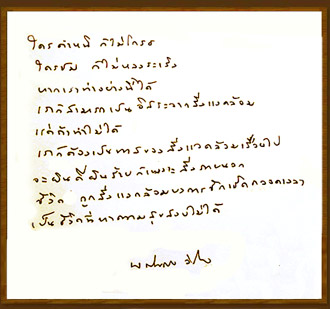 ใครตำหนิ ก็ไม่โกรธ
ใครชม ก็ไม่หลงระเริง
หากเราทำอย่างนี้ได้
เราก็สามารถเป็นอิสระจากสิ่งแวดล้อม
แต่ถ้าทำไม่ได้
เราก็ต้องเป็นทาสของสิ่งแวดล้อมเรื่อยไป
จะยินดียินร้ายก็เพราะสิ่งภายนอก
ชีวิต ถูกสิ่งแวดล้อมบงการชักเชิดตลอดเวลา
เป็นชีวิตที่หาความสุขสงบไม่ได้